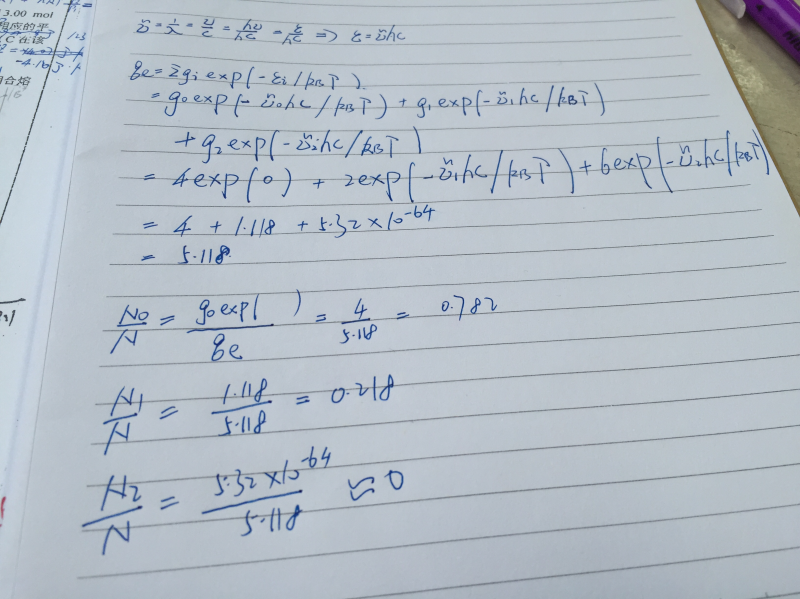 3.00 mol
相应的平
C 在该
合熔
ṽ = 1/λ = υ/c = hυ/hc = ε/hc ⇒ ε = ṽhc
qe = Σgi exp(-εi/kBT)
= g0 exp(-ṽ0hc/kBT) + g1 exp(-ṽ1hc/kBT)
+ g2 exp(-ṽ2hc/kBT)
= 4exp(0) + 2exp(-ṽ1hc/kBT) + 6exp(-ṽ2hc/kBT)
= 4 + 1.118 + 5.32×10^-64
= 5.118
N0/N = g0 exp( )/qe = 4/5.118 = 0.782
N1/N = 1.118/5.118 = 0.218
N2/N = 5.32×10^-64/5.118 ≈ 0